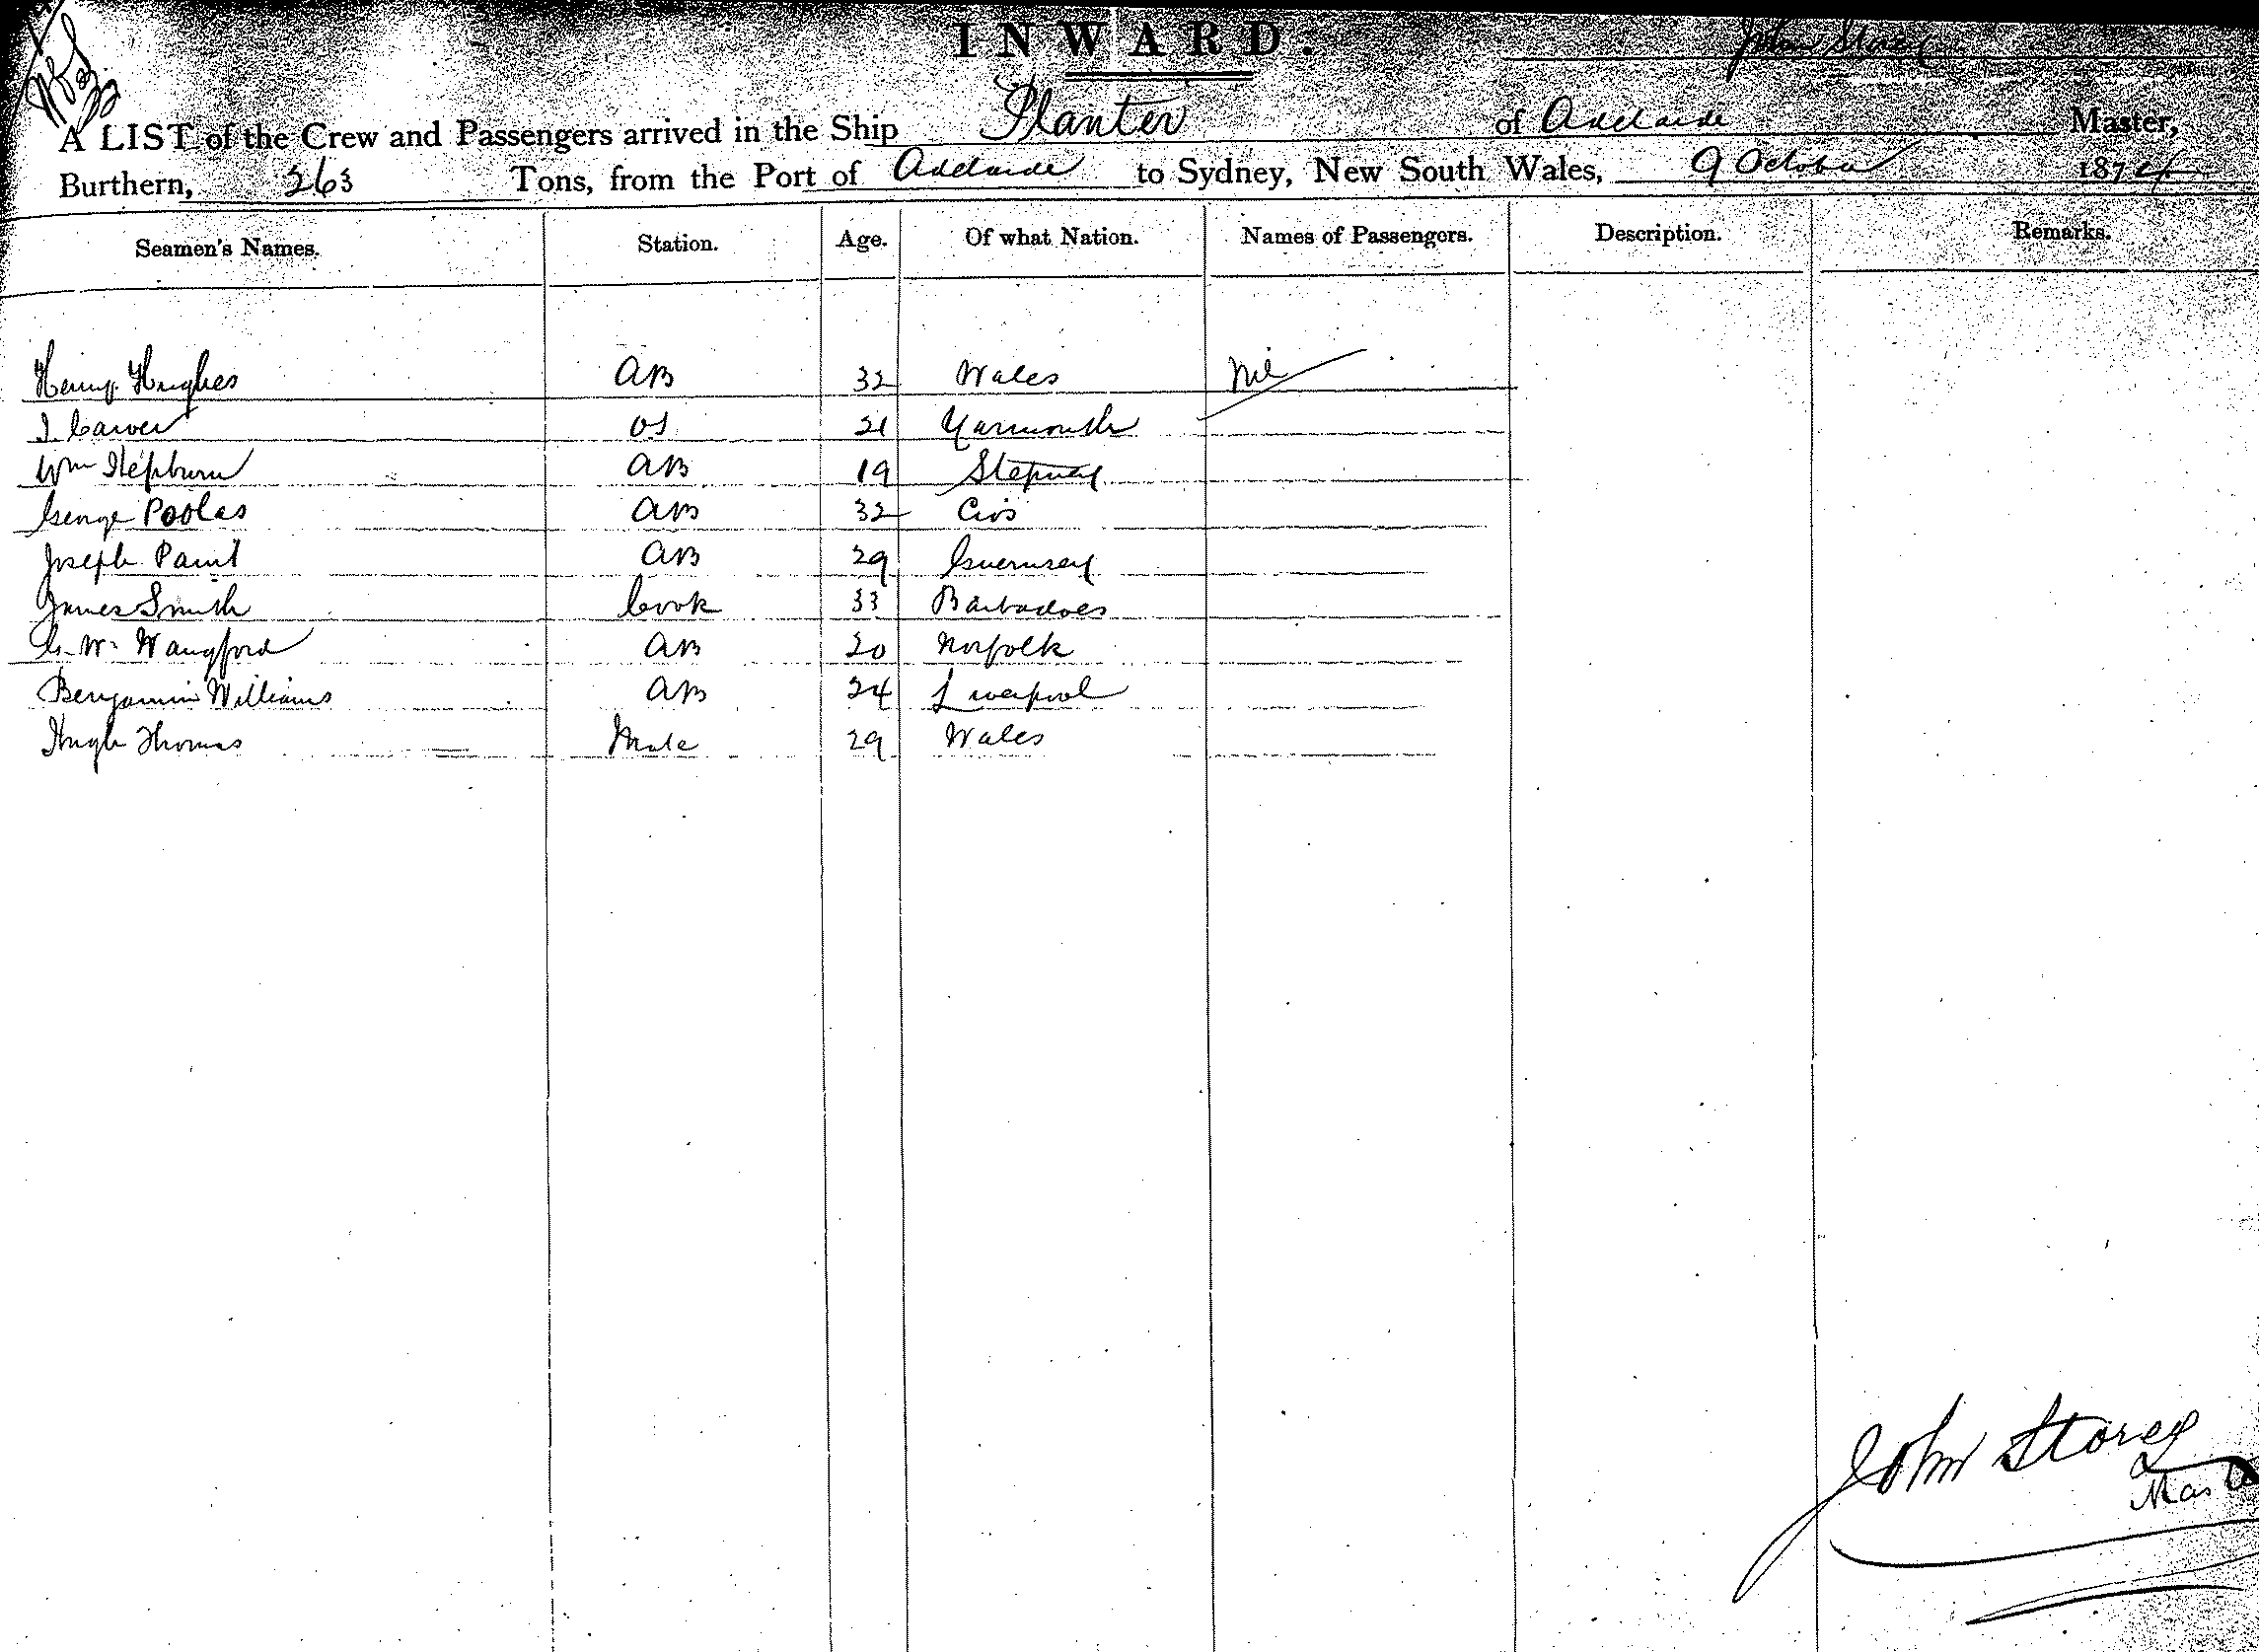 INWARD.
John Storey
A LIST of the Crew and Passengers arrived in the Ship Planter of Adelaide Master,
Burthern, 263 Tons, from the Port of Adelaide to Sydney, New South Wales, 9 October 1874
Seamen's Names. Station. Age. Of what Nation. Names of Passengers. Description. Remarks.
Henry Hughes AB 32 Wales Nil
J. Carver OS 21 Yarmouth
Wm Hepburn AB 19 Stepney
George Poolas AB 32 Cios
Joseph Paint AB 29 Guernsey
James Smith Cook 33 Barbadoes
G. W. Wangford AB 20 Norfolk
Benjamin Williams AB 24 Liverpool
Hugh Thomas Mate 29 Wales
John Storey